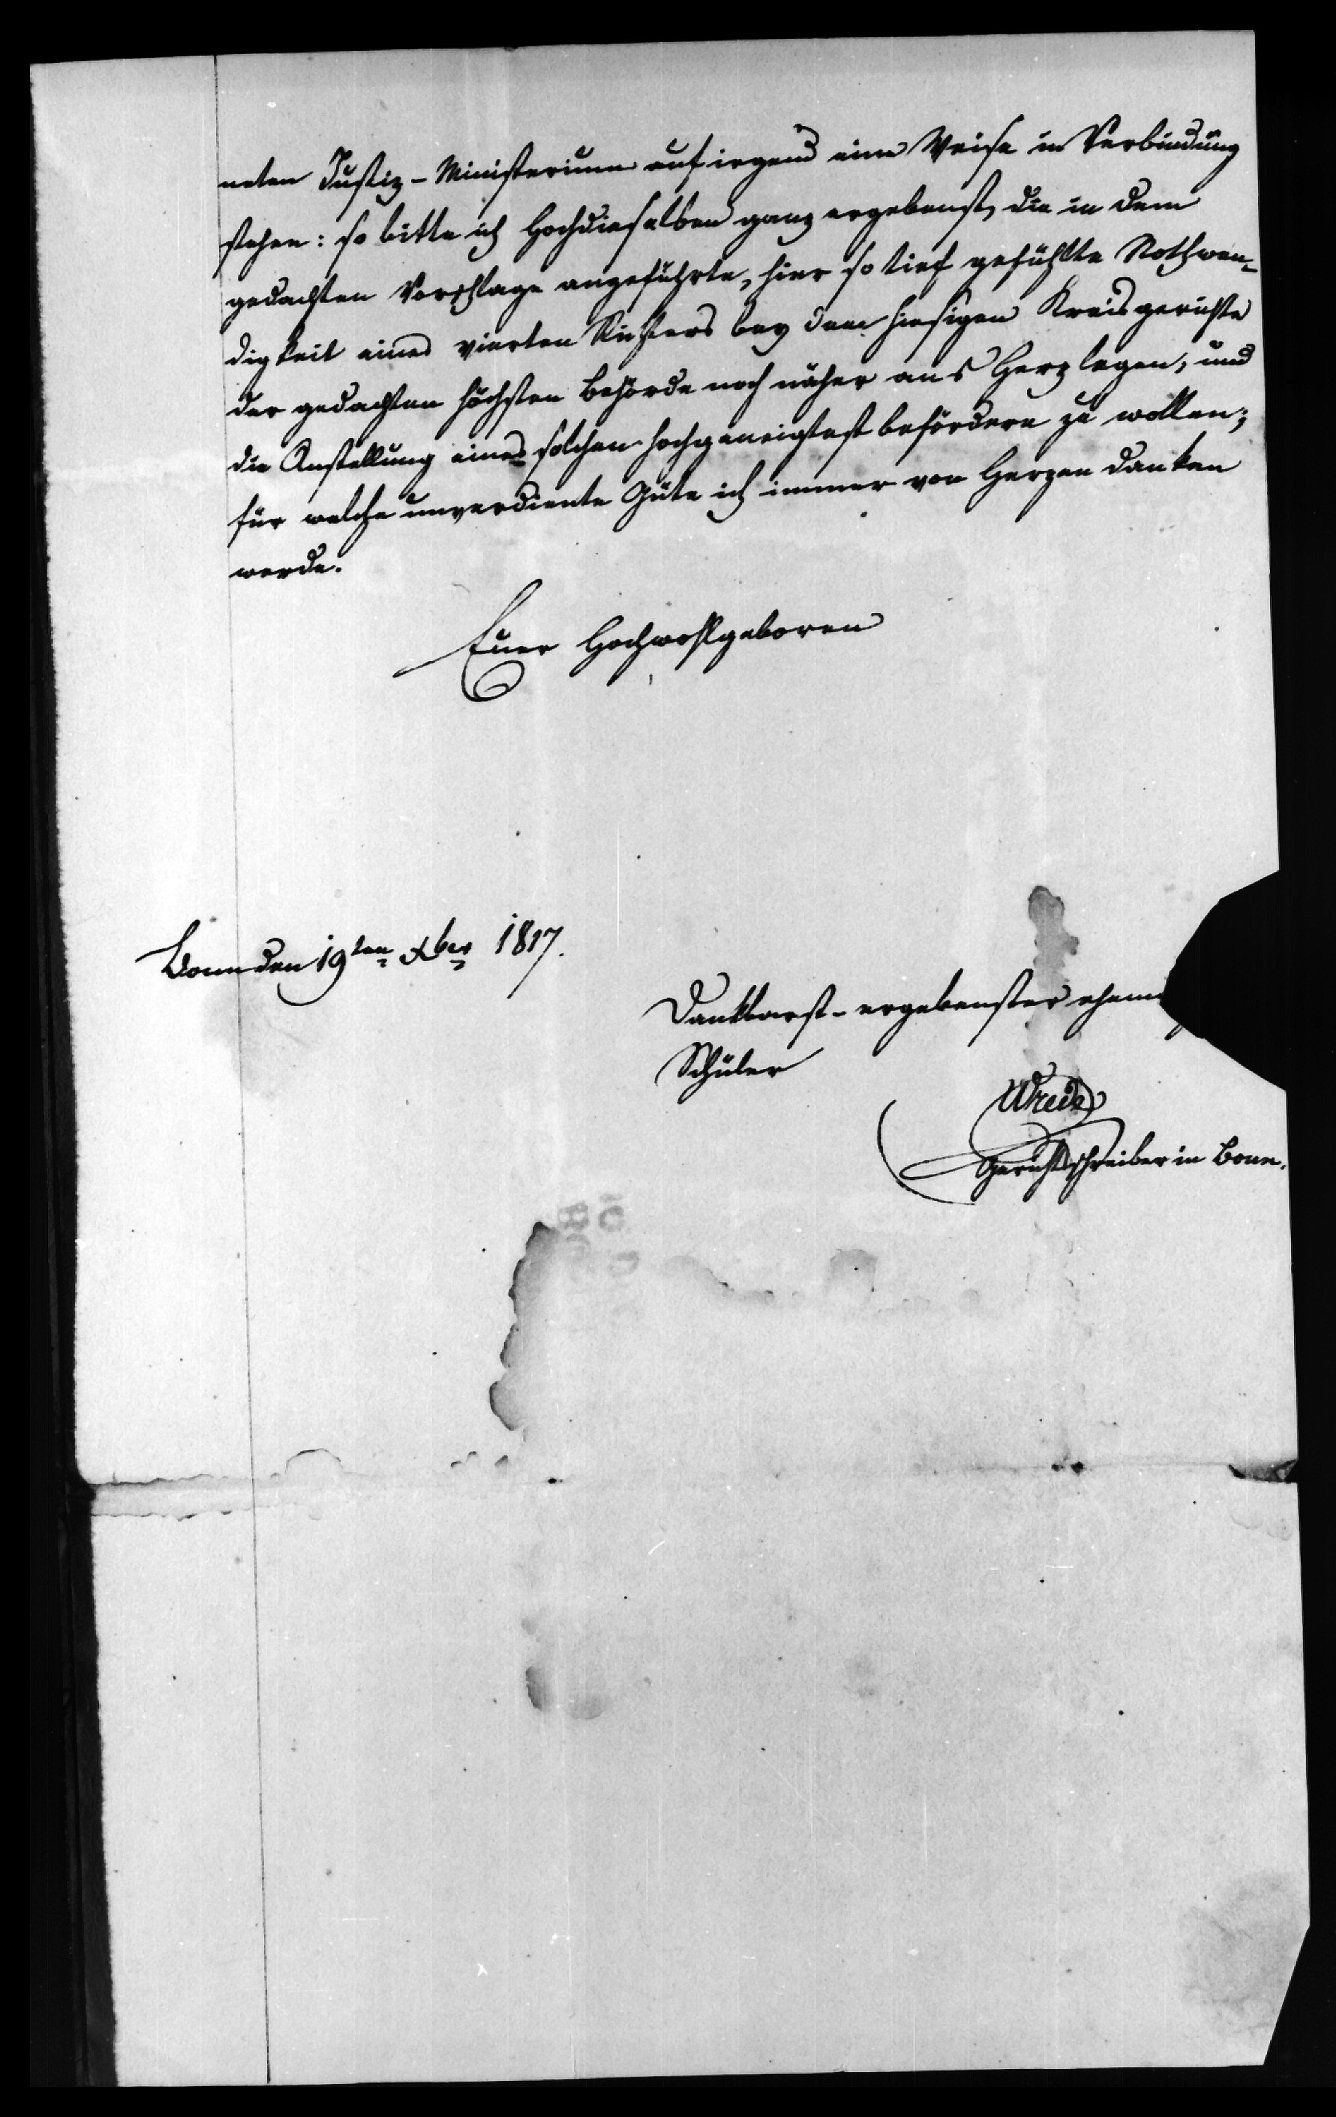 neten Justiz-Ministerium auf irgend eine Weise in Verbindung
stehen: so bitte ich Hochdieselben ganz ergebenst, die in dem
gedachten Vorschlage angeführte, hier so tief gefühlte Nothwen-
digkeit eines vierten Richters bey dem hiesigen Kreisgerichte
der gedachten höchsten Behörde noch näher ans Herz legen, und
die Anstellung eines solchen hochgeneigtest befördern zu wollen;
für welche unverdiente Güte ich immer von Herzen danken
werde.
Euer Hochwohlgeboren
Bonn den 19ten Xber 1817.
Dankbarst-ergebenster ehem
Schüler
Wrede
Gerichtschreiber in Bonn.